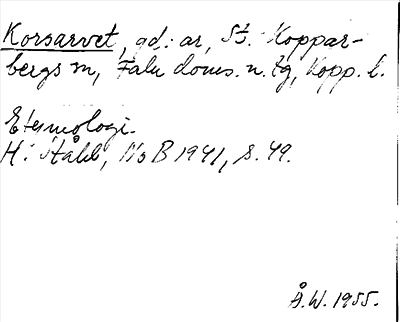 Korsarvet, gd: ar, St. Koppar-
bergs sn, Falu doms. n. tg, Kopp. l.
Etymologi.
H. Ståhl, NoB 1941, s. 49.
Å.W. 1955.